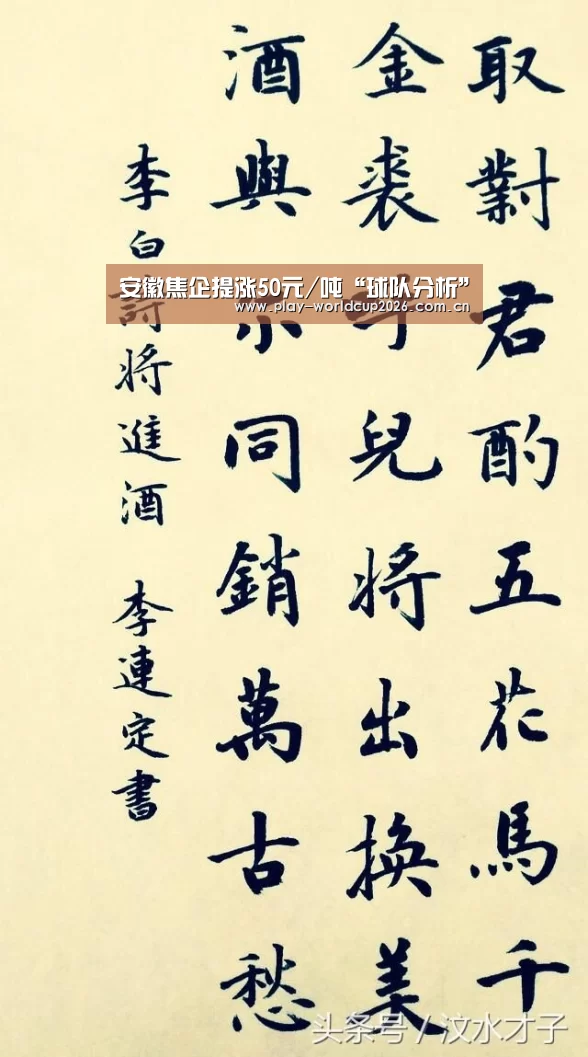 取對君酌五花馬千
金裘呼兒將出換美
酒與尔同銷萬古愁
李白詩將進酒 李連定書
安徽焦企提涨50元/吨“球队分析”
www.play-worldcup2026.com.cn
头条号/汶水才子